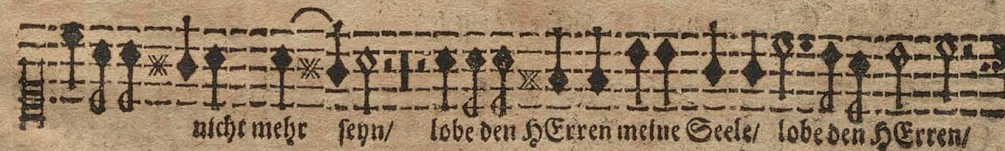 nicht mehr seyn/ lobe den HErren meine Seele/ lobe den HErren/